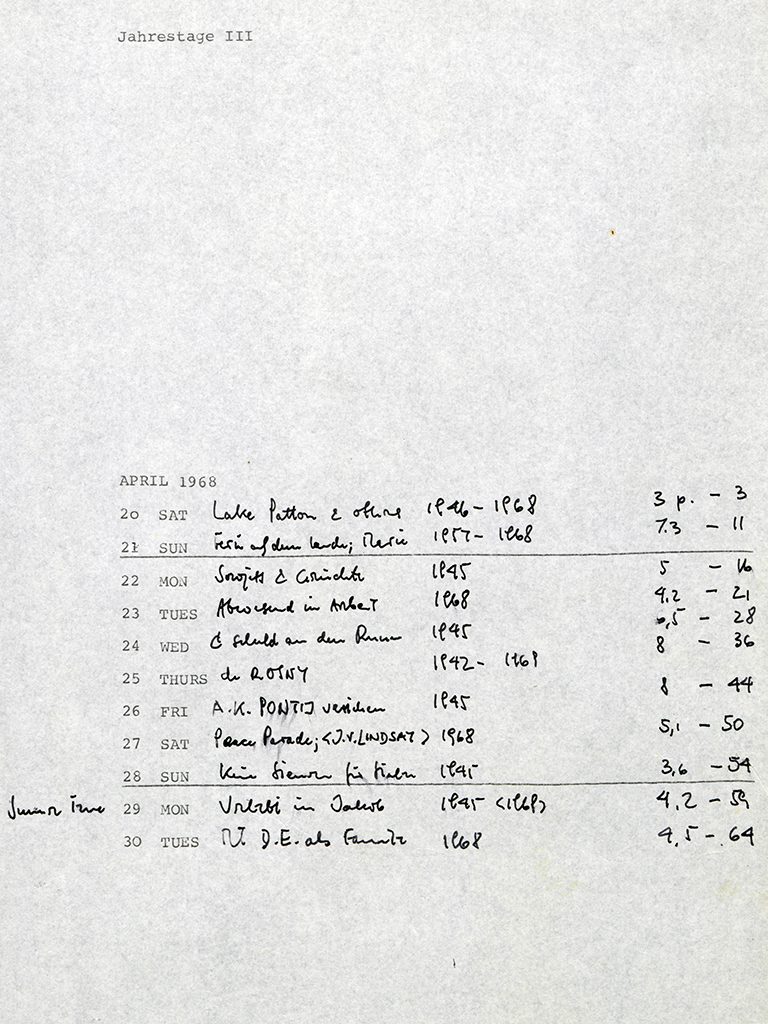 Jahrestage III
APRIL 1968
20 SAT Lake Patton 2 1946 - 1968 3 p. - 3
21 SUN Ferien auf dem Lande; Marie 1957 - 1968 7.3 - 11
22 MON Sowjets & 1945 5 - 16
23 TUES Abwesend in Arbeit 1968 4.2 - 21
24 WED C schuld an den 1945 6,5 - 28
25 THURS de ROSNY 1942 - 1968 8 - 36
26 FRI A.K. PONTIJ 1945 8 - 44
27 SAT Peace Parade; <J.V. LINDSAY> 1968 5,1 - 50
28 SUN Kein für 1945 3,6 - 54
29 MON in Jakob 1945 <1968> 4,2 - 59
30 TUES D.E. als 1968 4,5 - 64